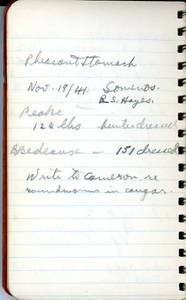 Pheasant Stomach
Nov. 19/41. Somenos.
R.S. Hayes.
Peake
128 lbs hunter dressed
Bedeaux — 151 dressed
Write to Cameron re
roundworms in cougar.